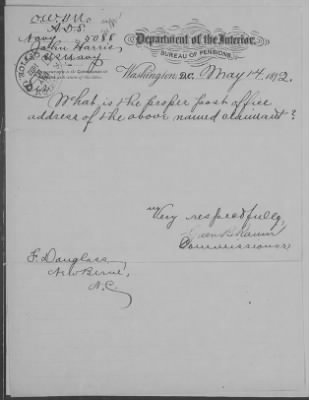 Department of the Interior,
BUREAU OF PENSIONS,
Washington, D.C., May 14, 1892.
A.D.S.
Navy 3088
John Harris
U.S. Navy
Sir:
What is the proper post office
address of the above named claimant?
Very respectfully,
Commissioner.
F. Douglass,
New Berne,
N.C.